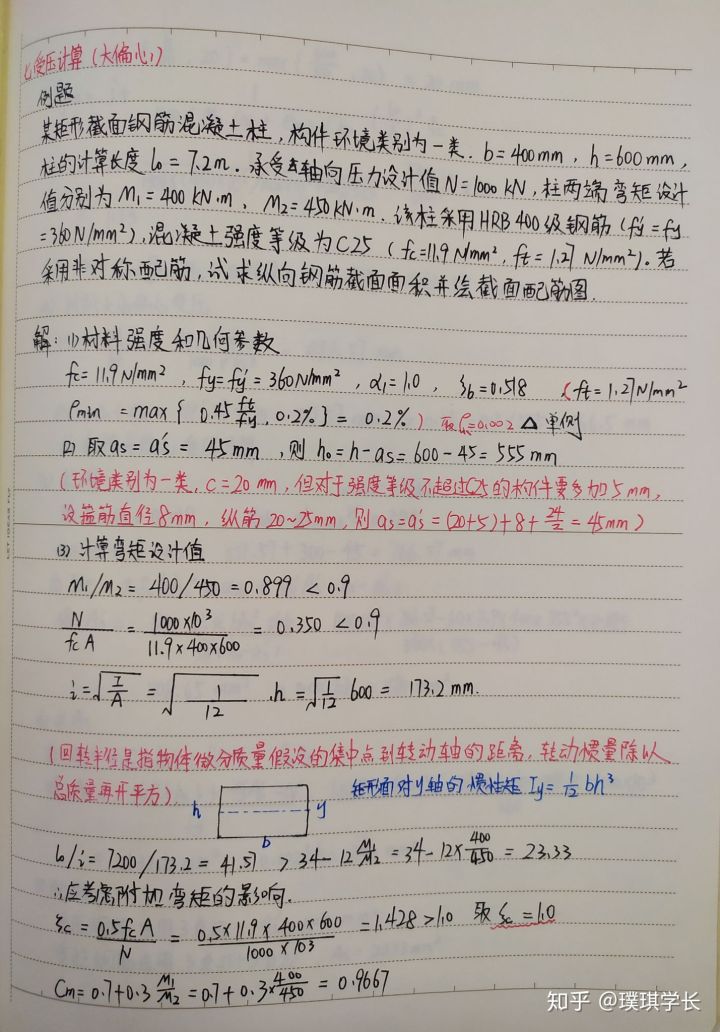 七、受压计算(大偏心)
例题
某矩形截面钢筋混凝土柱,构件环境类别为一类.b=400mm,h=600mm,
柱的计算长度l₀=7.2m.承受轴向压力设计值N=1000KN,柱两端弯矩设计
值分别为M₁=400KN·m、M₂=450KN·m.该柱采用HRB400级钢筋(fy'=fy
=360N/mm²),混凝土强度等级为C25(fc=11.9N/mm²,ft=1.27N/mm²).若
采用非对称配筋,试求纵向钢筋截面面积并绘截面配筋图.
解:(1)材料强度和几何参数
fc=11.9N/mm²,fy=fy'=360N/mm²,α₁=1.0,ξb=0.518 (ft=1.27N/mm²
ρmin=max{0.45 ft/fy,0.2%}=0.2%) 取ρ'min=0.002 △单侧
(2)取as=a's=45mm,则h₀=h-as=600-45=555mm
(环境类别为一类,c=20mm,但对于强度等级不超过C25的构件要多加5mm,
设箍筋直径8mm,纵筋20~25mm,则as=a's=(20+5)+8+24/2=45mm)
(3)计算弯矩设计值
M₁/M₂=400/450=0.899<0.9
N/fcA=1000×10³/11.9×400×600=0.350<0.9
i=√(I/A)=√(1/12)·h=√(1/12) 600=173.2mm.
(回转半径是指物体微分质量假设的集中点到转动轴的距离,转动惯量除以
总质量再开平方)
矩形面对y轴的惯性矩Iy=1/12 bh³
h
y
b
l₀/i=7200/173.2=41.57>34-12 M₁/M₂=34-12×400/450=23.33
∴应考虑附加弯矩的影响.
ξc=0.5fcA/N=0.5×11.9×400×600/1000×10³=1.428>1.0 取ξc=1.0
Cm=0.7+0.3 M₁/M₂=0.7+0.3×400/450=0.9667
LET IDEAS FLY
知乎 @璞琪学长